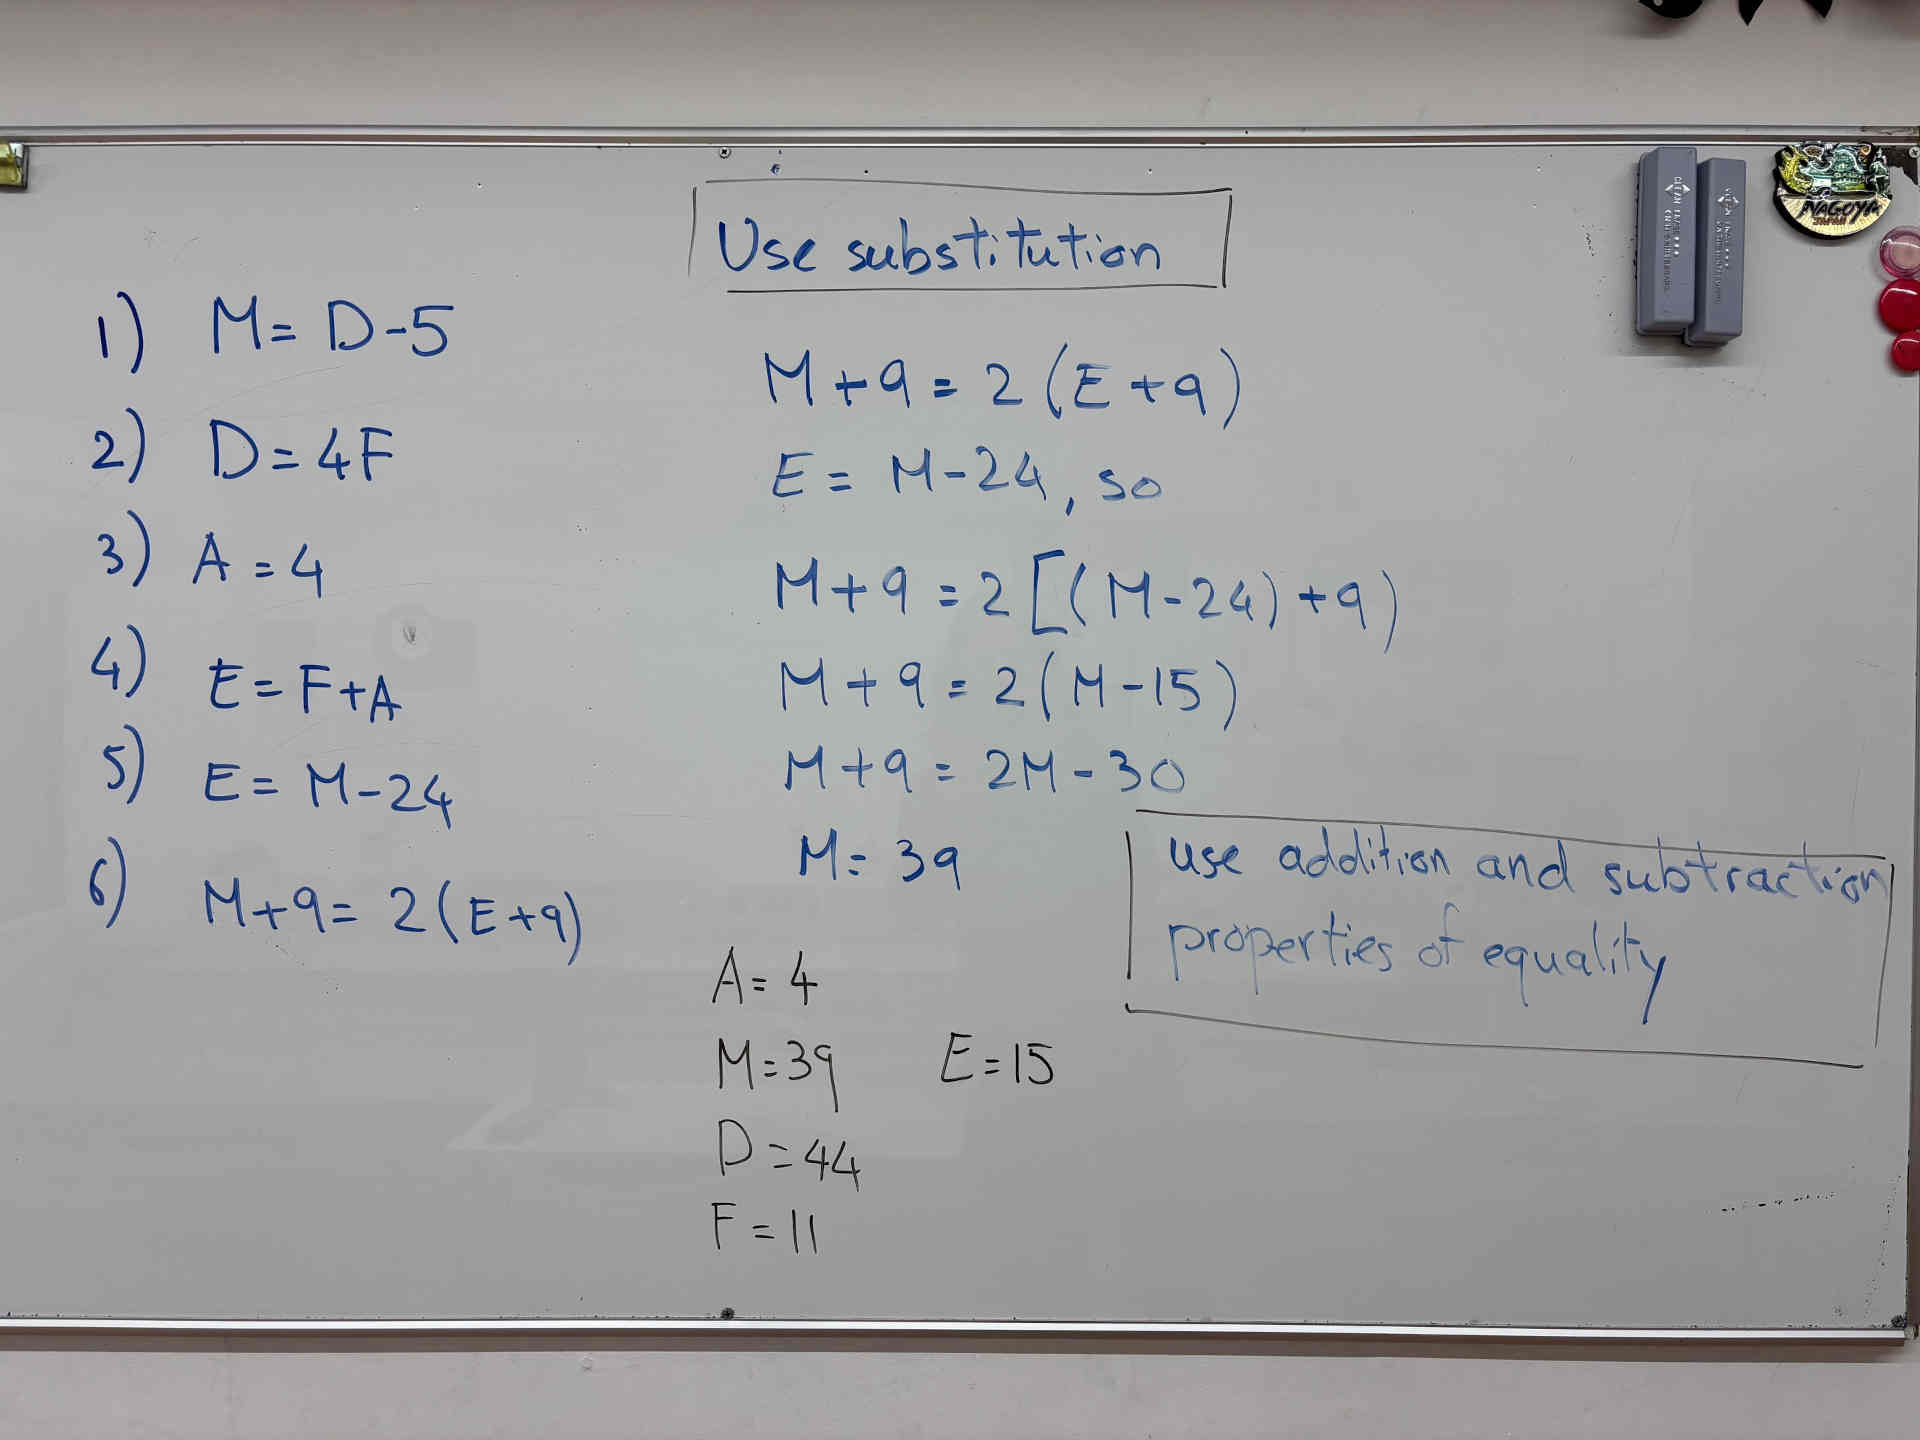 Use substitution
1) M = D - 5
2) D = 4F
3) A = 4
4) E = F + A
5) E = M - 24
6) M + 9 = 2 (E + 9)
M + 9 = 2 (E + 9)
E = M - 24, so
M + 9 = 2 [(M - 24) + 9)
M + 9 = 2 (M - 15)
M + 9 = 2M - 30
M = 39
use addition and subtraction
properties of equality
A = 4
M = 39 E = 15
D = 44
F = 11
NAGOYA
JAPAN